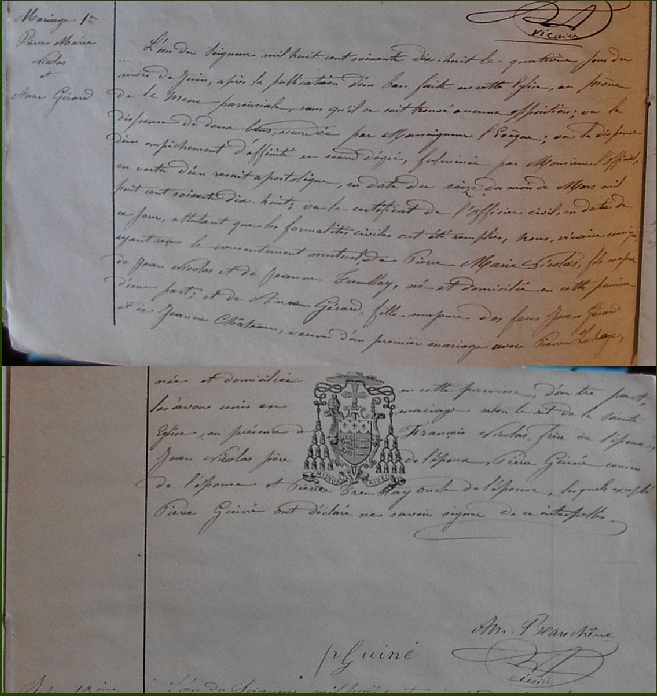 Mariage 1er
Pierre Marie
Nicolas
et
Anne Gérard
Vicaire
L'an du Seigneur mil huit cent soixante dix huit le quatrième jour du
mois de Juin, après la publication d'un ban faite en cette Eglise, au prône
de la Messe paroissiale, sans qu'il se soit trouvé aucune opposition; vu la
dispense de deux bans, accordée par Monseigneur l'Evêque; vu la dispense
d'un empêchement d'affinité au second degré, fulminée par Monsieur l'Official,
en vertu d'un rescrit apostolique, en date du seize du mois de Mars mil
huit cent soixante dix huit; vu le certificat de l'officier civil, en date de
ce jour, attestant que les formalités civiles ont été remplies, nous, vicaire
ayant reçu le consentement mutuel de Pierre Marie Nicolas, fils majeur
de Jean Nicolas et de Jeanne Tremblay, né et domicilié en cette paroisse
d'une part; et de Anne Gérard, fille majeure des feus Jean Gérard
et de Jeanne Château, veuve d'un premier mariage avec Pierre
née et domiciliée en cette paroisse, d'autre part,
les avons unis en mariage selon le rit de la sainte
Eglise, en présence de François Nicolas, frère de l'époux,
Jean Nicolas père de l'époux, Pierre Guiné cousin
de l'épouse et Pierre Tremblay oncle de l'époux, lesquels excepté
Pierre Guiné ont déclaré ne savoir signer de ce interpellés.
pGuiné
Am. Beauchêne
Vicaire
L'an du Seigneur mil huit